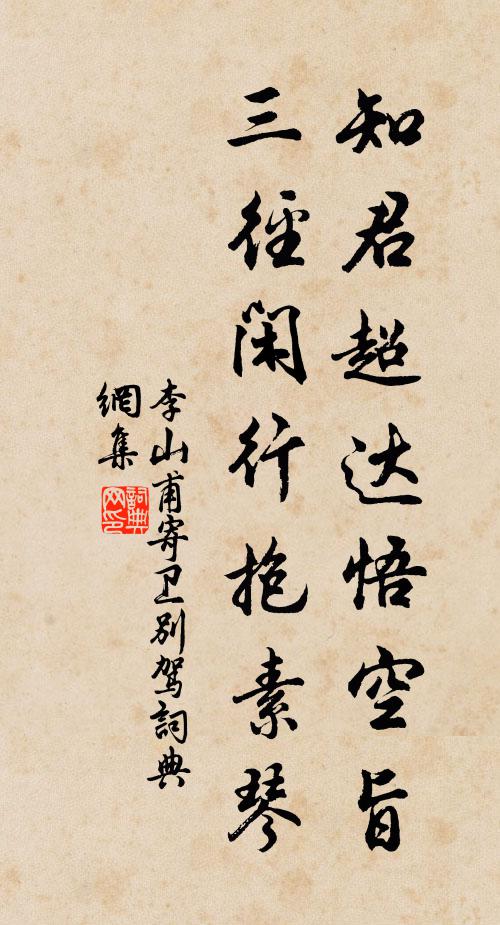 知君超达悟空旨
三径閑行抱素琴
李山甫寄卫别驾詞典
網集
詞典
网印